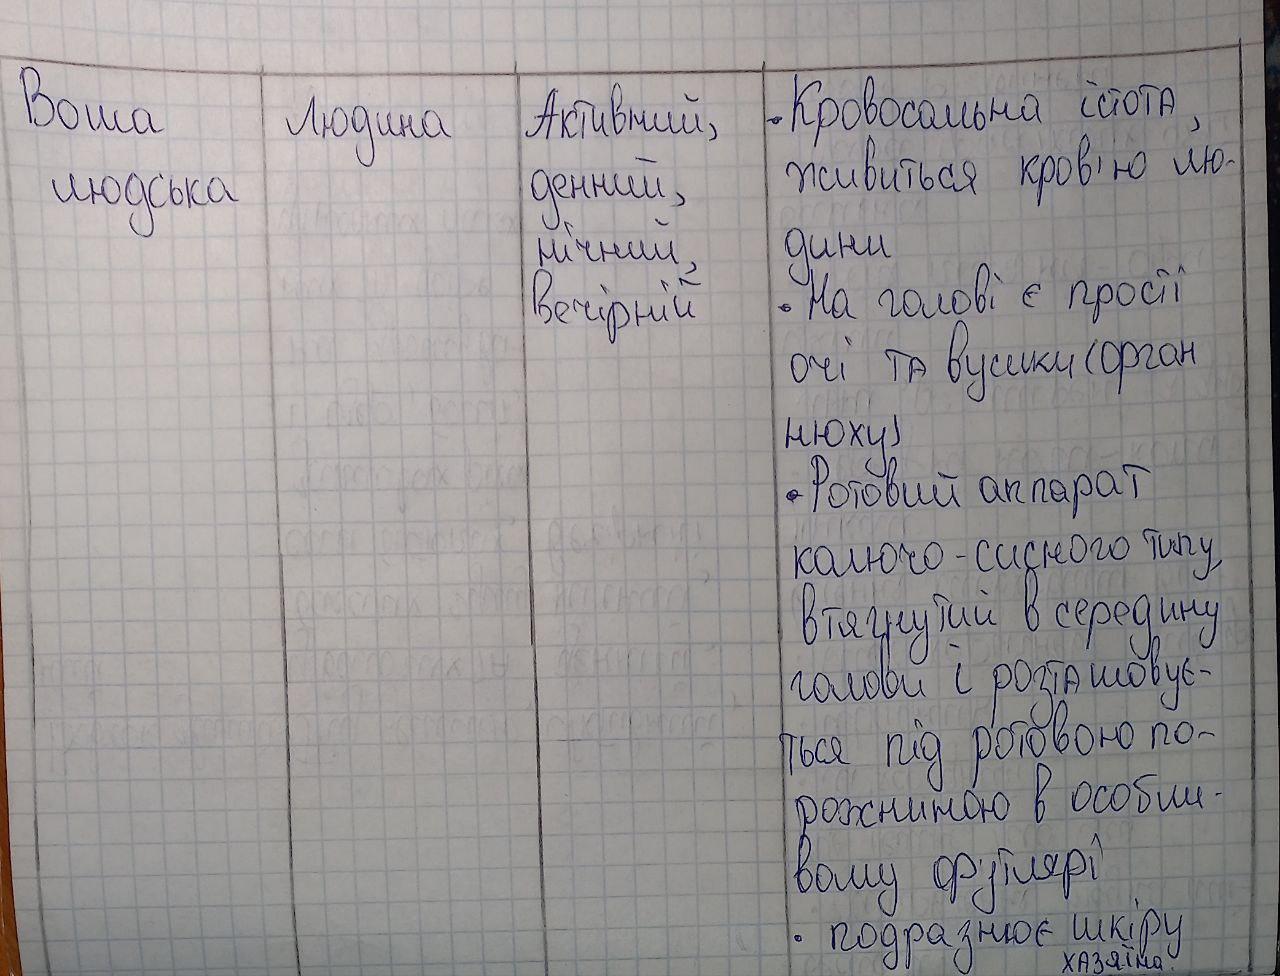 Воша
людська
Людина
Активний,
денний,
нічний,
вечірній
• Кровосальна істота,
живиться кров'ю лю-
дини
• На голові є прості
очі та вусики (орган
нюху)
• Ротовий аппарат
колючо-сисного типу,
втягнутий в середину
голови і розташовує-
ться під ротовою по-
рожниною в особли-
вому футлярі
• подразнює шкіру
хазяїна